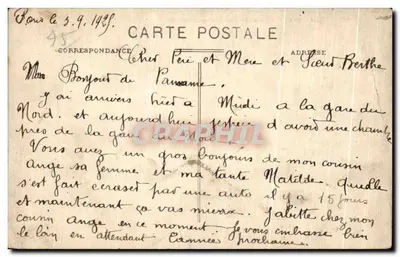 Paris le 3.9.1925.
CARTE POSTALE
CORRESPONDANCE
ADRESSE
Cher Père et Mere et Sœur Berthe
Bonjour de Paname.
J'ai arriver hier a Midi a la gare du
Nord. et aujourd'hui j'espère d'avoir une chambre
pres de la gare du Nord.
Vous avez un gros bonjours de mon cousin
Ange sa femme et ma tante Matilde. qu'elle
s'est fait ecraser par une auto il y a 15 jours
et maintenant ça vas mieux. J'abitte chez mon
cousin Ange en ce moment. Je vous embrasse bien
le loin en attendant l'année prochaine.